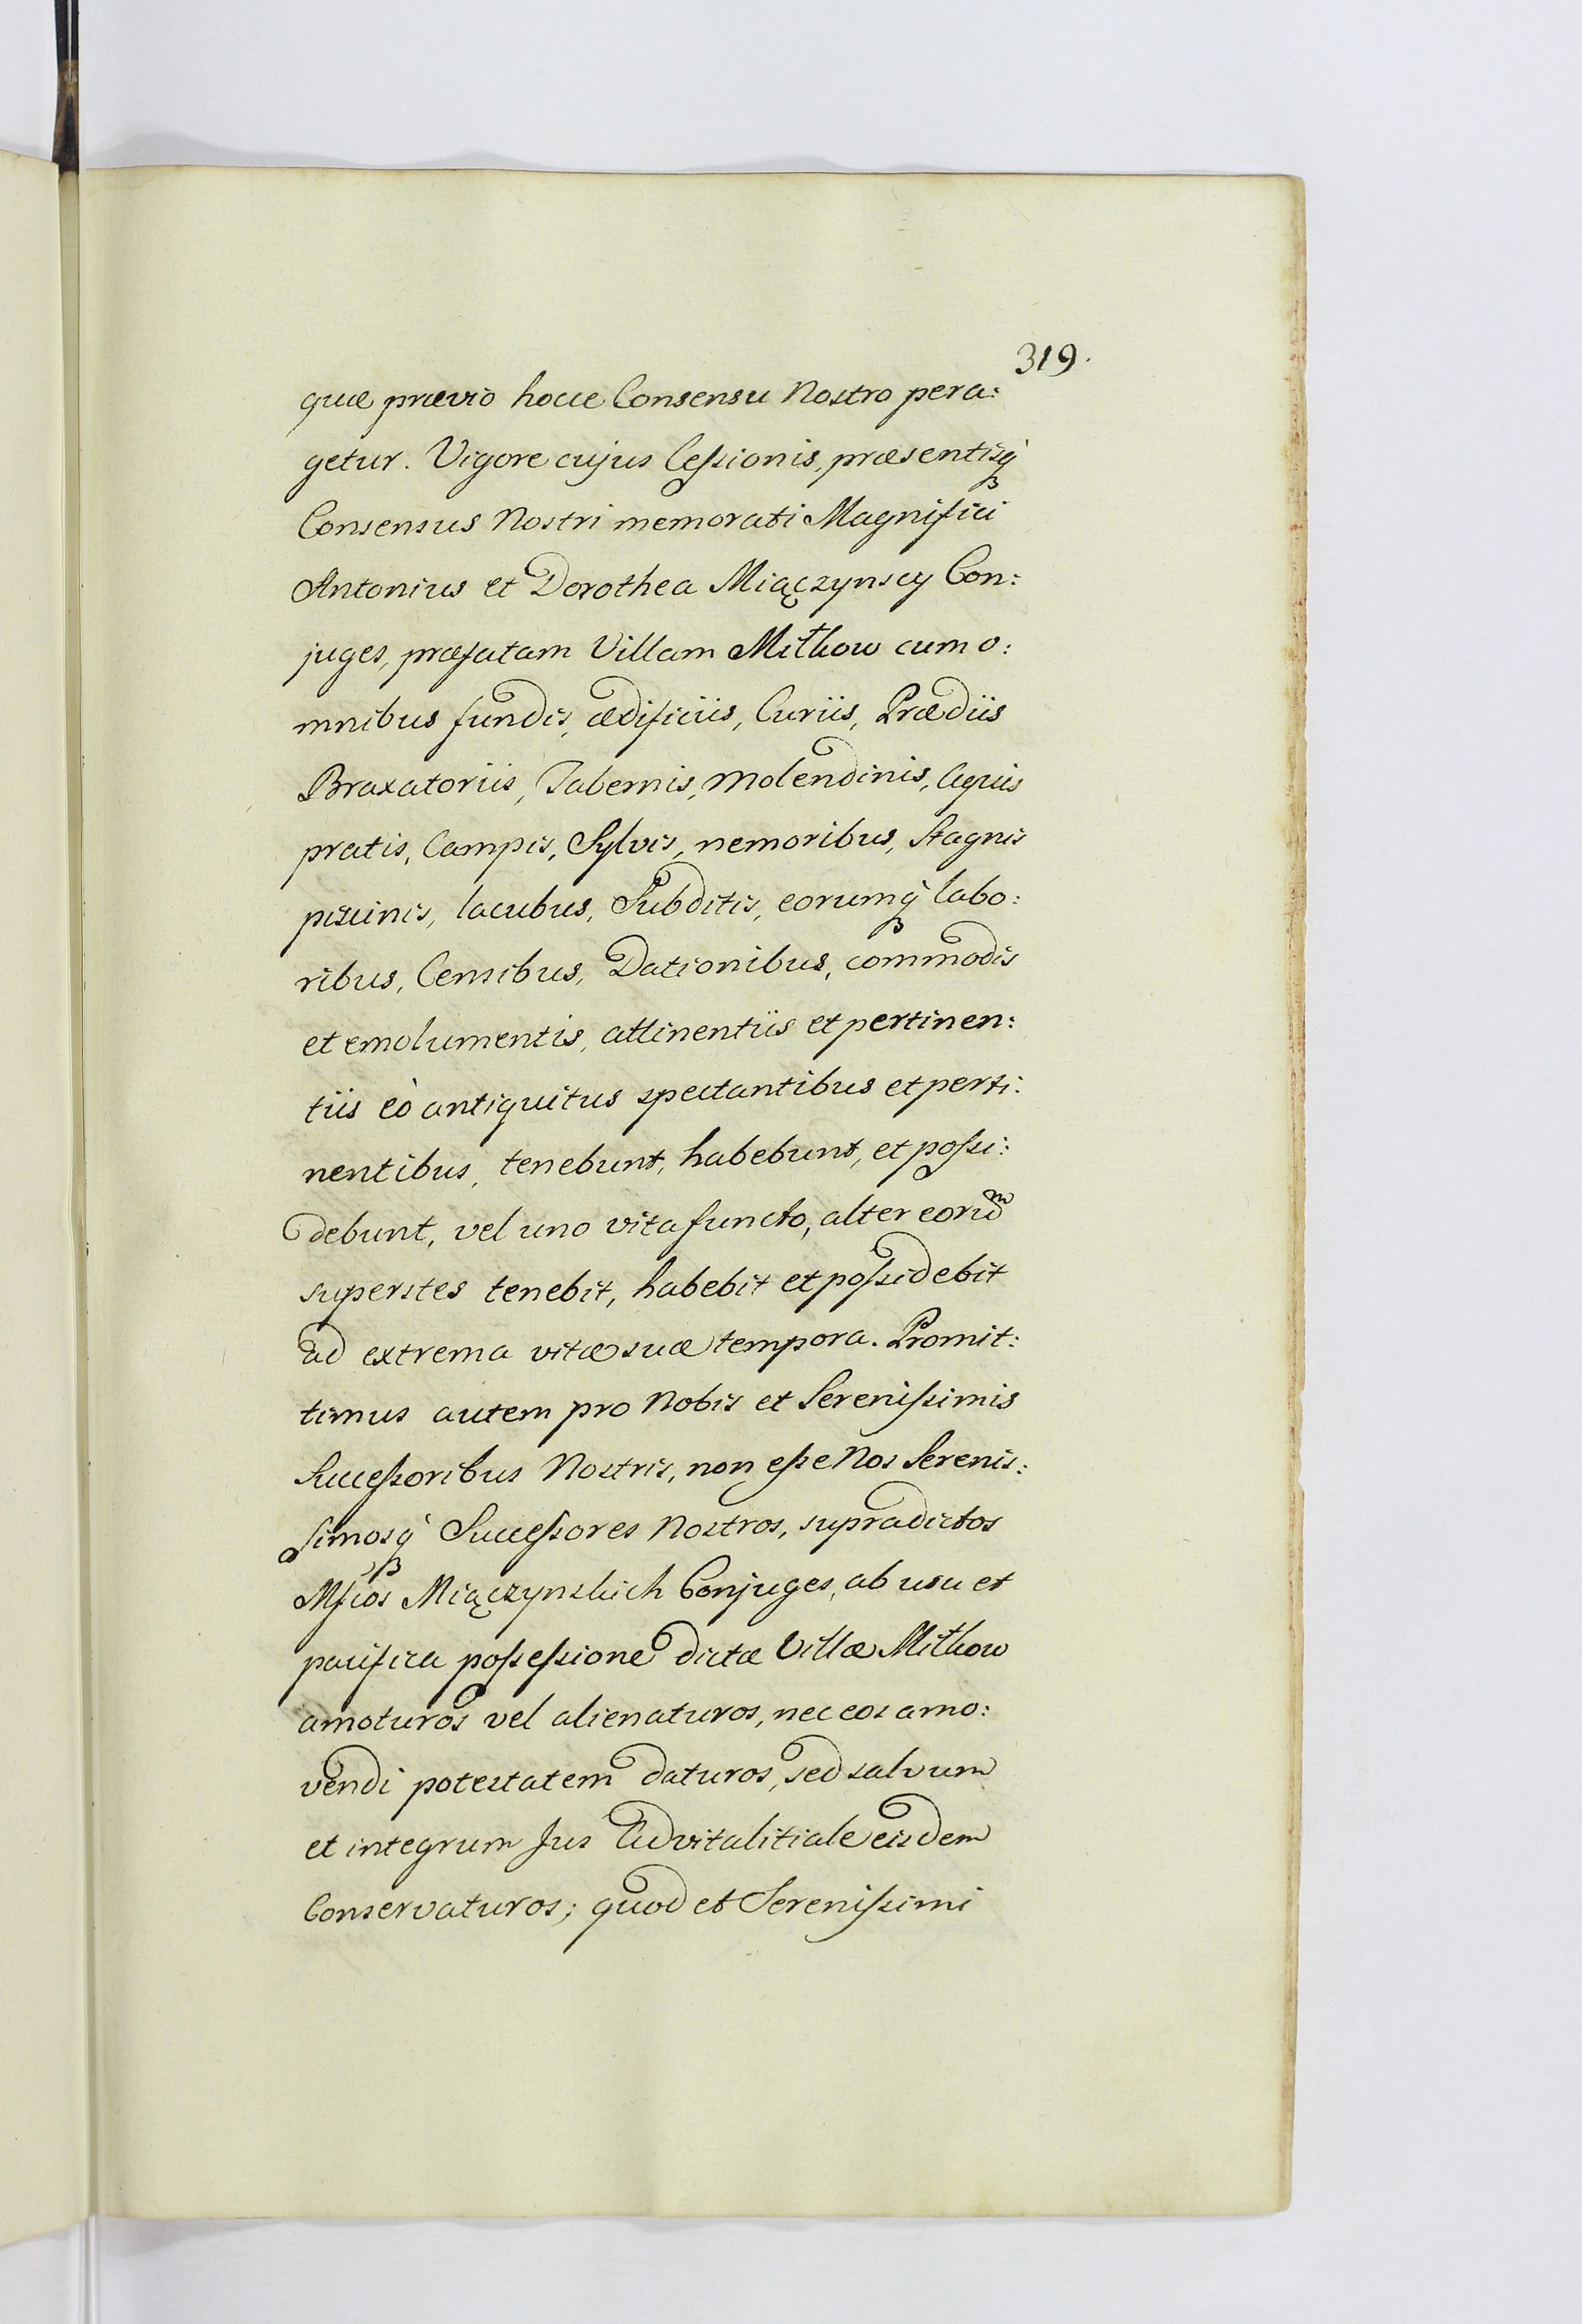 319.
quæ prævio hocce Consensu Nostro pera:
getur. Vigore cujus Cessionis, præsentisq́ʒ
Consensus Nostri memorati Magnifici
Antonius et Dorothea Miączynscy Con:
juges, præfatam Villam Mitkow cum o:
mnibus fundis, ædificiis, Curiis, Prædiis
Braxatoriis, Tabernis, Molendinis, Agris
pratis, Campis, Sylvis, nemoribus, Stagnis
piscinis, lacubus, Subditis, eorumq́ʒ labo:
ribus, Censibus, Dationibus, commodis
et emolumentis, attinentiis et pertinen:
tiis eò antiquitus spectantibus et perti:
nentibus, tenebunt, habebunt, et possi:
debunt, vel uno vita functo, alter eoruᵐ
superstes tenebit, habebit et possidebit
ad extrema vitæ suæ tempora. Promit:
timus autem pro Nobis et Serenissimis
Successoribus Nostris, non esse Nos Serenis:
simosq́ʒ Successores Nostros, supradictos
Mficos Miączynskich Conjuges, ab usu et
pacifica possessione dictæ Villæ Mitkow
amoturos vel alienaturos, nec eos amo:
vendi potestatem daturos, sed salvum
et integrum Jus Advitalitiale eisdem
Conservaturos; quod et Serenissimi